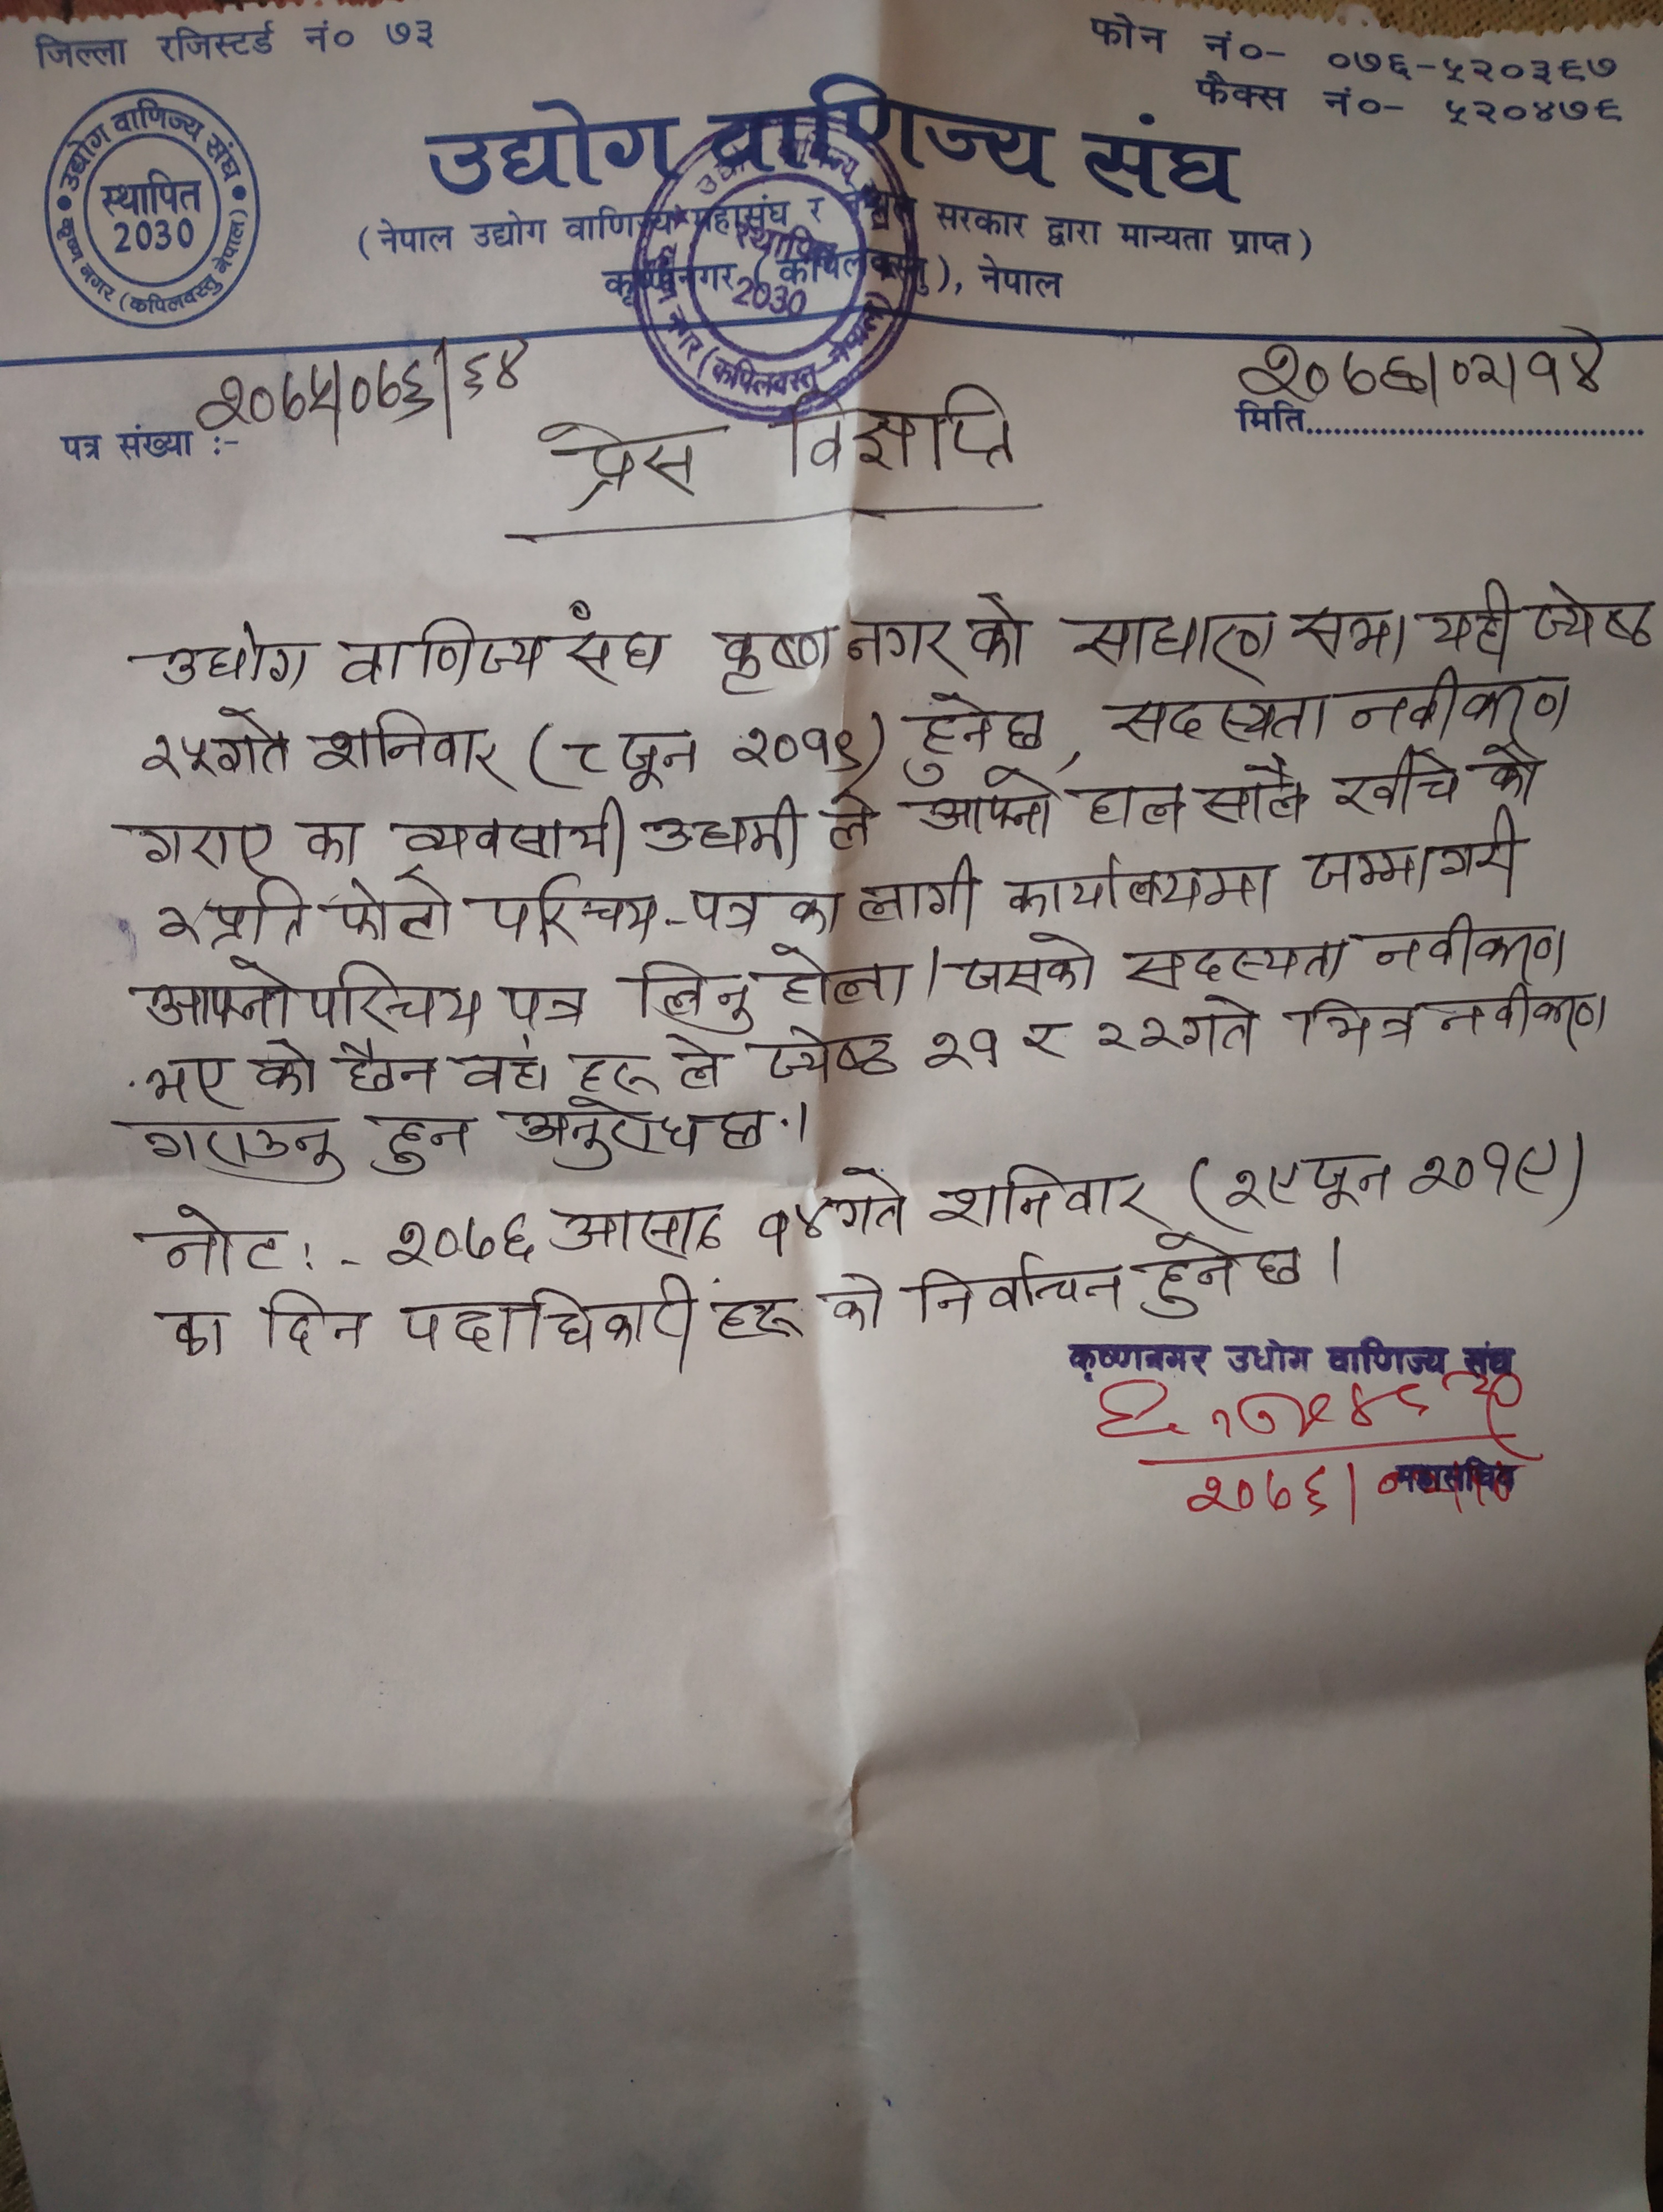 जिल्ला रजिस्टर्ड नं० ७३
फोन नं०- ०७६-५२०३९७
फैक्स नं०- ५२०४७९
उद्योग वाणिज्य संघ
स्थापित
2030
कृष्ण नगर (कपिलवस्तु नेपाल)
उद्योग वाणिज्य संघ
(नेपाल उद्योग वाणिज्य महासंघ र नेपाल सरकार द्वारा मान्यता प्राप्त)
कृष्णनगर (कपिलवस्तु), नेपाल
स्थापित
2030
नगर (कपिलवस्तु-नेपाल)
पत्र संख्या :- २०७५/०७६/६४
मिति २०७६/०२/१४
प्रेस विज्ञप्ति
उद्योग वाणिज्य संघ कृष्ण नगर को साधारण सभा यही ज्येष्ठ
२५गते शनिवार (८ जून २०१९) हुनेछ, सदस्यता नवीकरण
गराए का व्यवसायी उद्यमी ले आफ्नो हाल सालै खीचे को
२ प्रति फोटो परिचय-पत्र का लागी कार्यालयमा जम्मा गरी
आफ्नो परिचय पत्र लिनु होला। जसको सदस्यता नवीकरण
भए को छैन वहाँ हरू ले ज्येष्ठ २१ र २२गते भित्र नवीकरण
गराउनु हुन अनुरोध छ।
नोट:- २०७६ आसाढ १४गते शनिवार (२९ जून २०१९)
का दिन पदाधिकारी हरू को निर्वाचन हुनेछ।
कृष्णनगर उधोग वाणिज्य संघ
२०७६।
महासचिव